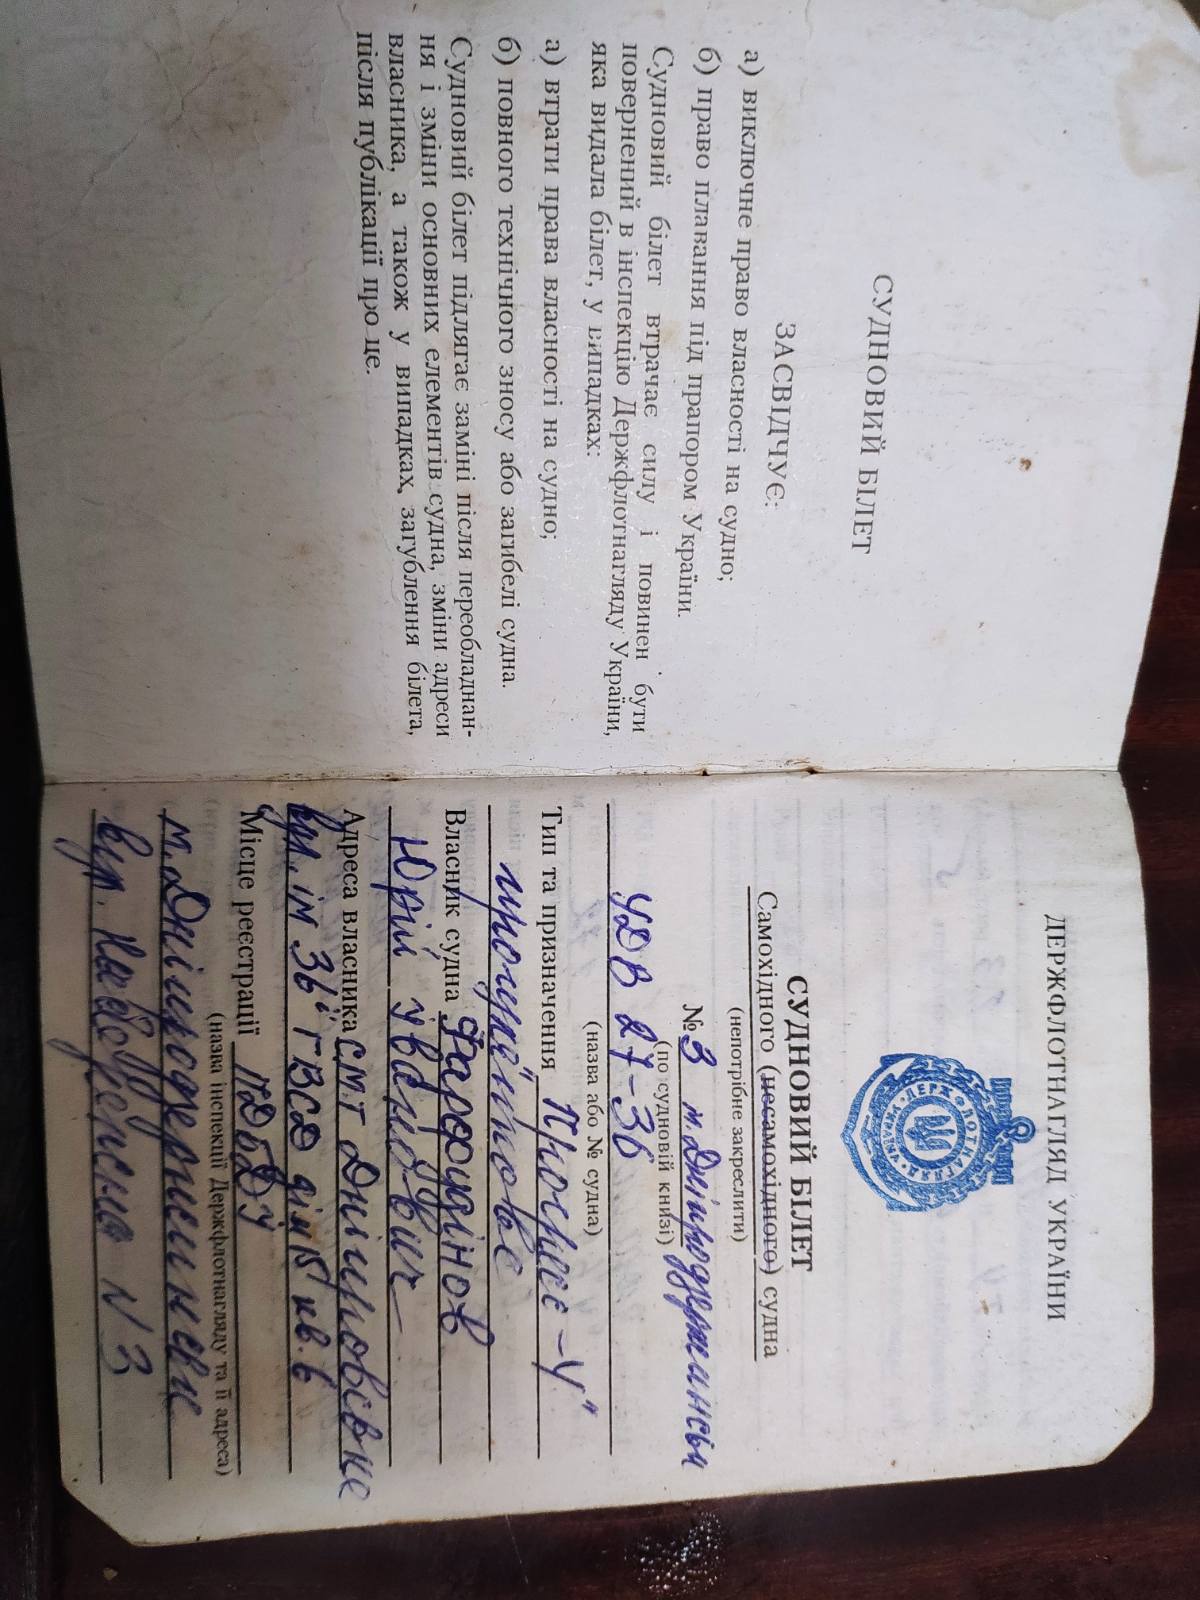 СУДНОВИЙ БІЛЕТ
ЗАСВІДЧУЄ:
а) виключне право власності на судно;
б) право плавання під прапором України.
Судновий білет втрачає силу і повинен бути
повернений в інспекцію Держфлотнагляду України,
яка видала білет, у випадках:
а) втрати права власності на судно;
б) повного технічного зносу або загибелі судна.
Судновий білет підлягає заміні після переобладнан-
ня і зміни основних елементів судна, зміни адреси
власника, а також у випадках, загублення білета,
після публікації про це.
ДЕРЖФЛОТНАГЛЯД УКРАЇНИ
ДЕРЖФЛОТНАГЛЯД
СУДНОВИЙ БІЛЕТ
Самохідного (несамохідного) судна
(непотрібне закреслити)
№ 3 м. Дніпродзержинськ
(по судновій книзі)
УДВ 27-36
(назва або № судна)
Тип та призначення "Прогрес-4"
прогулянкове
Власник судна
Юрій
Адреса власника смт Дніпровське
вул. ім 36
Місце реєстрації
(назва інспекції Держфлотнагляду та її адреса)
м. Дніпродзержинськ
вул. N 3